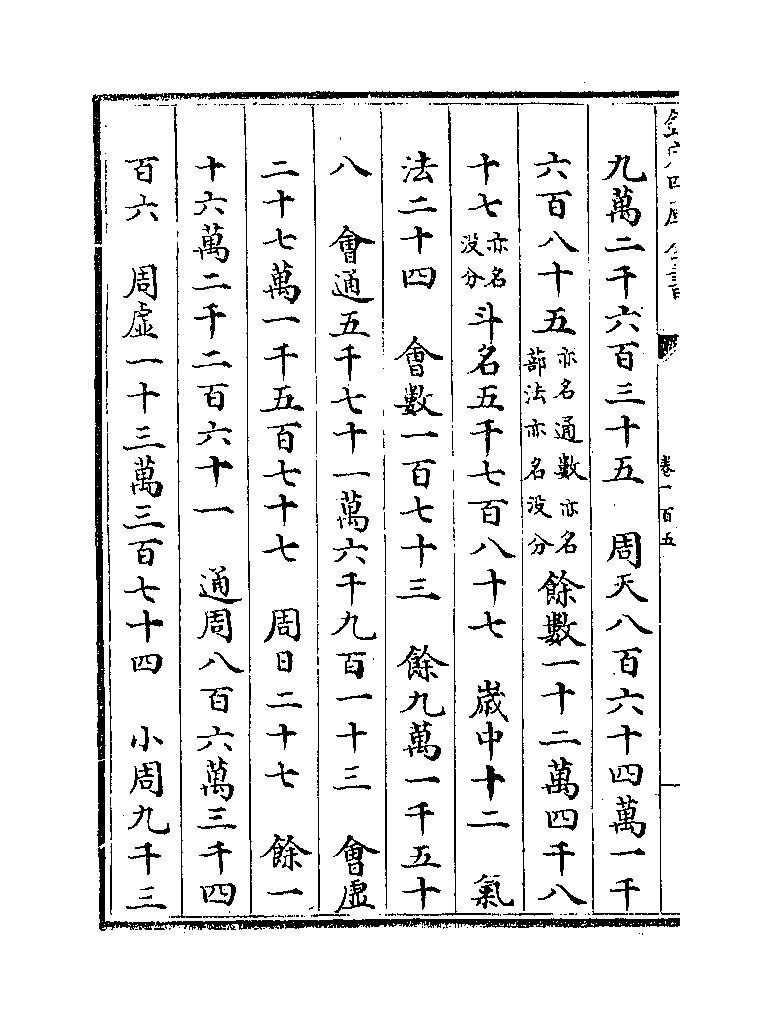 欽定四庫全書 卷一百五
九萬二千六百三十五 周天八百六十四萬一千
六百八十五亦名通數亦名蔀法亦名没分餘數一十二萬四千八
十七亦名没分斗名五千七百八十七 歲中十二 氣
法二十四 會數一百七十三 餘九萬一千五十
八 會通五千七十一萬六千九百一十三 會虛
二十七萬一千五百七十七 周日二十七 餘一
十六萬二千二百六十一 通周八百六萬三千四
百六 周虛一十三萬三百七十四 小周九千三